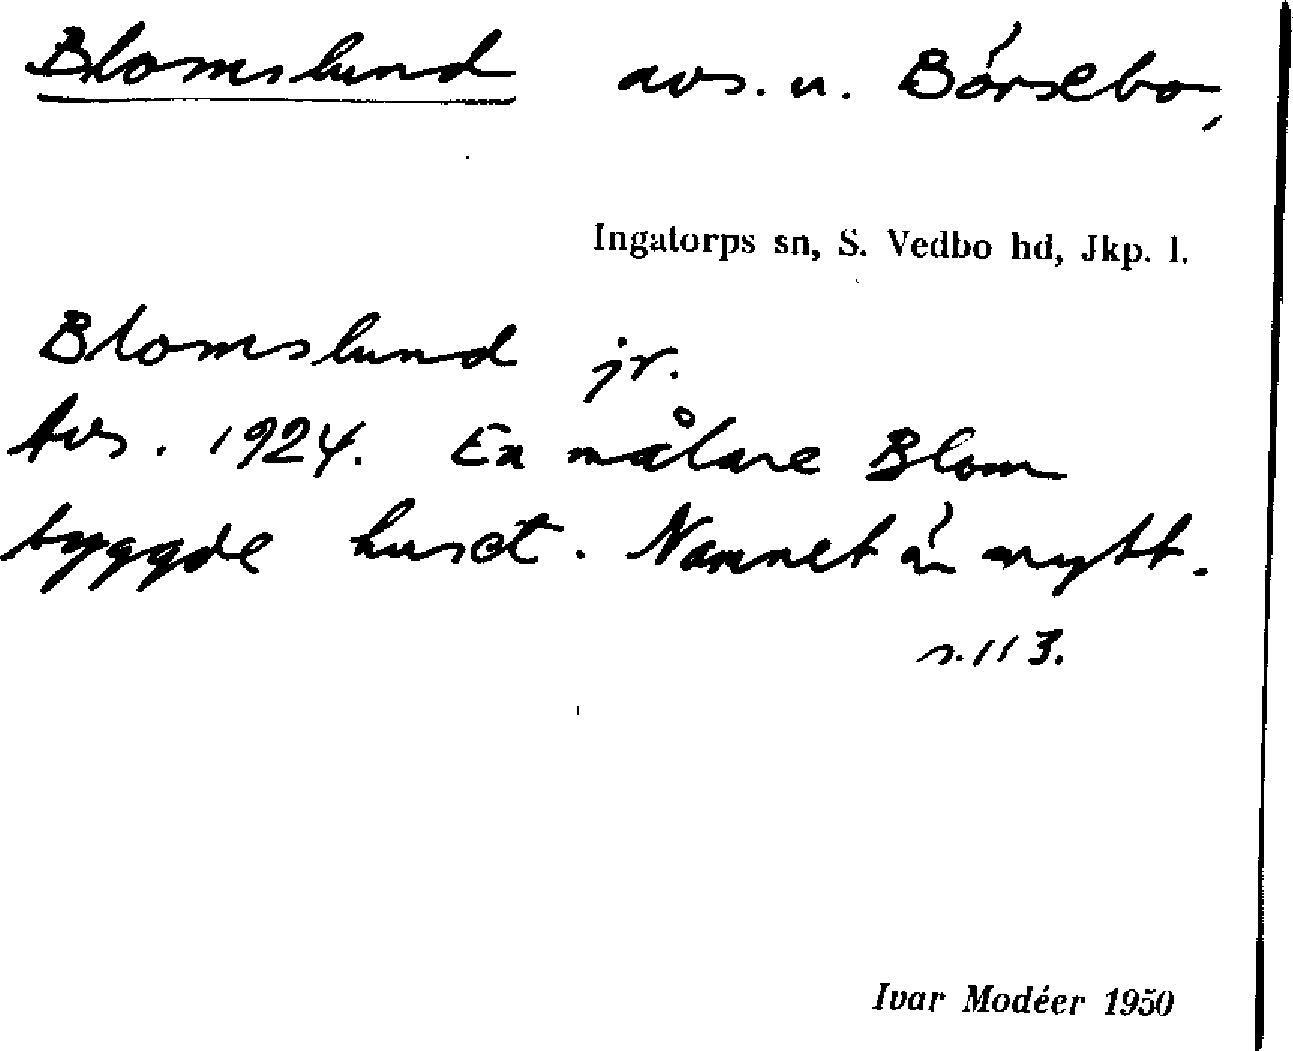 Blomslund avs. u. Börsebo,
Ingatorps sn, S. Vedbo hd, Jkp. l.
Blomslund jr.
Avs. 1924. En målare Blom
byggde huset. Namnet är nytt.
s. 113.
Ivar Modéer 1950